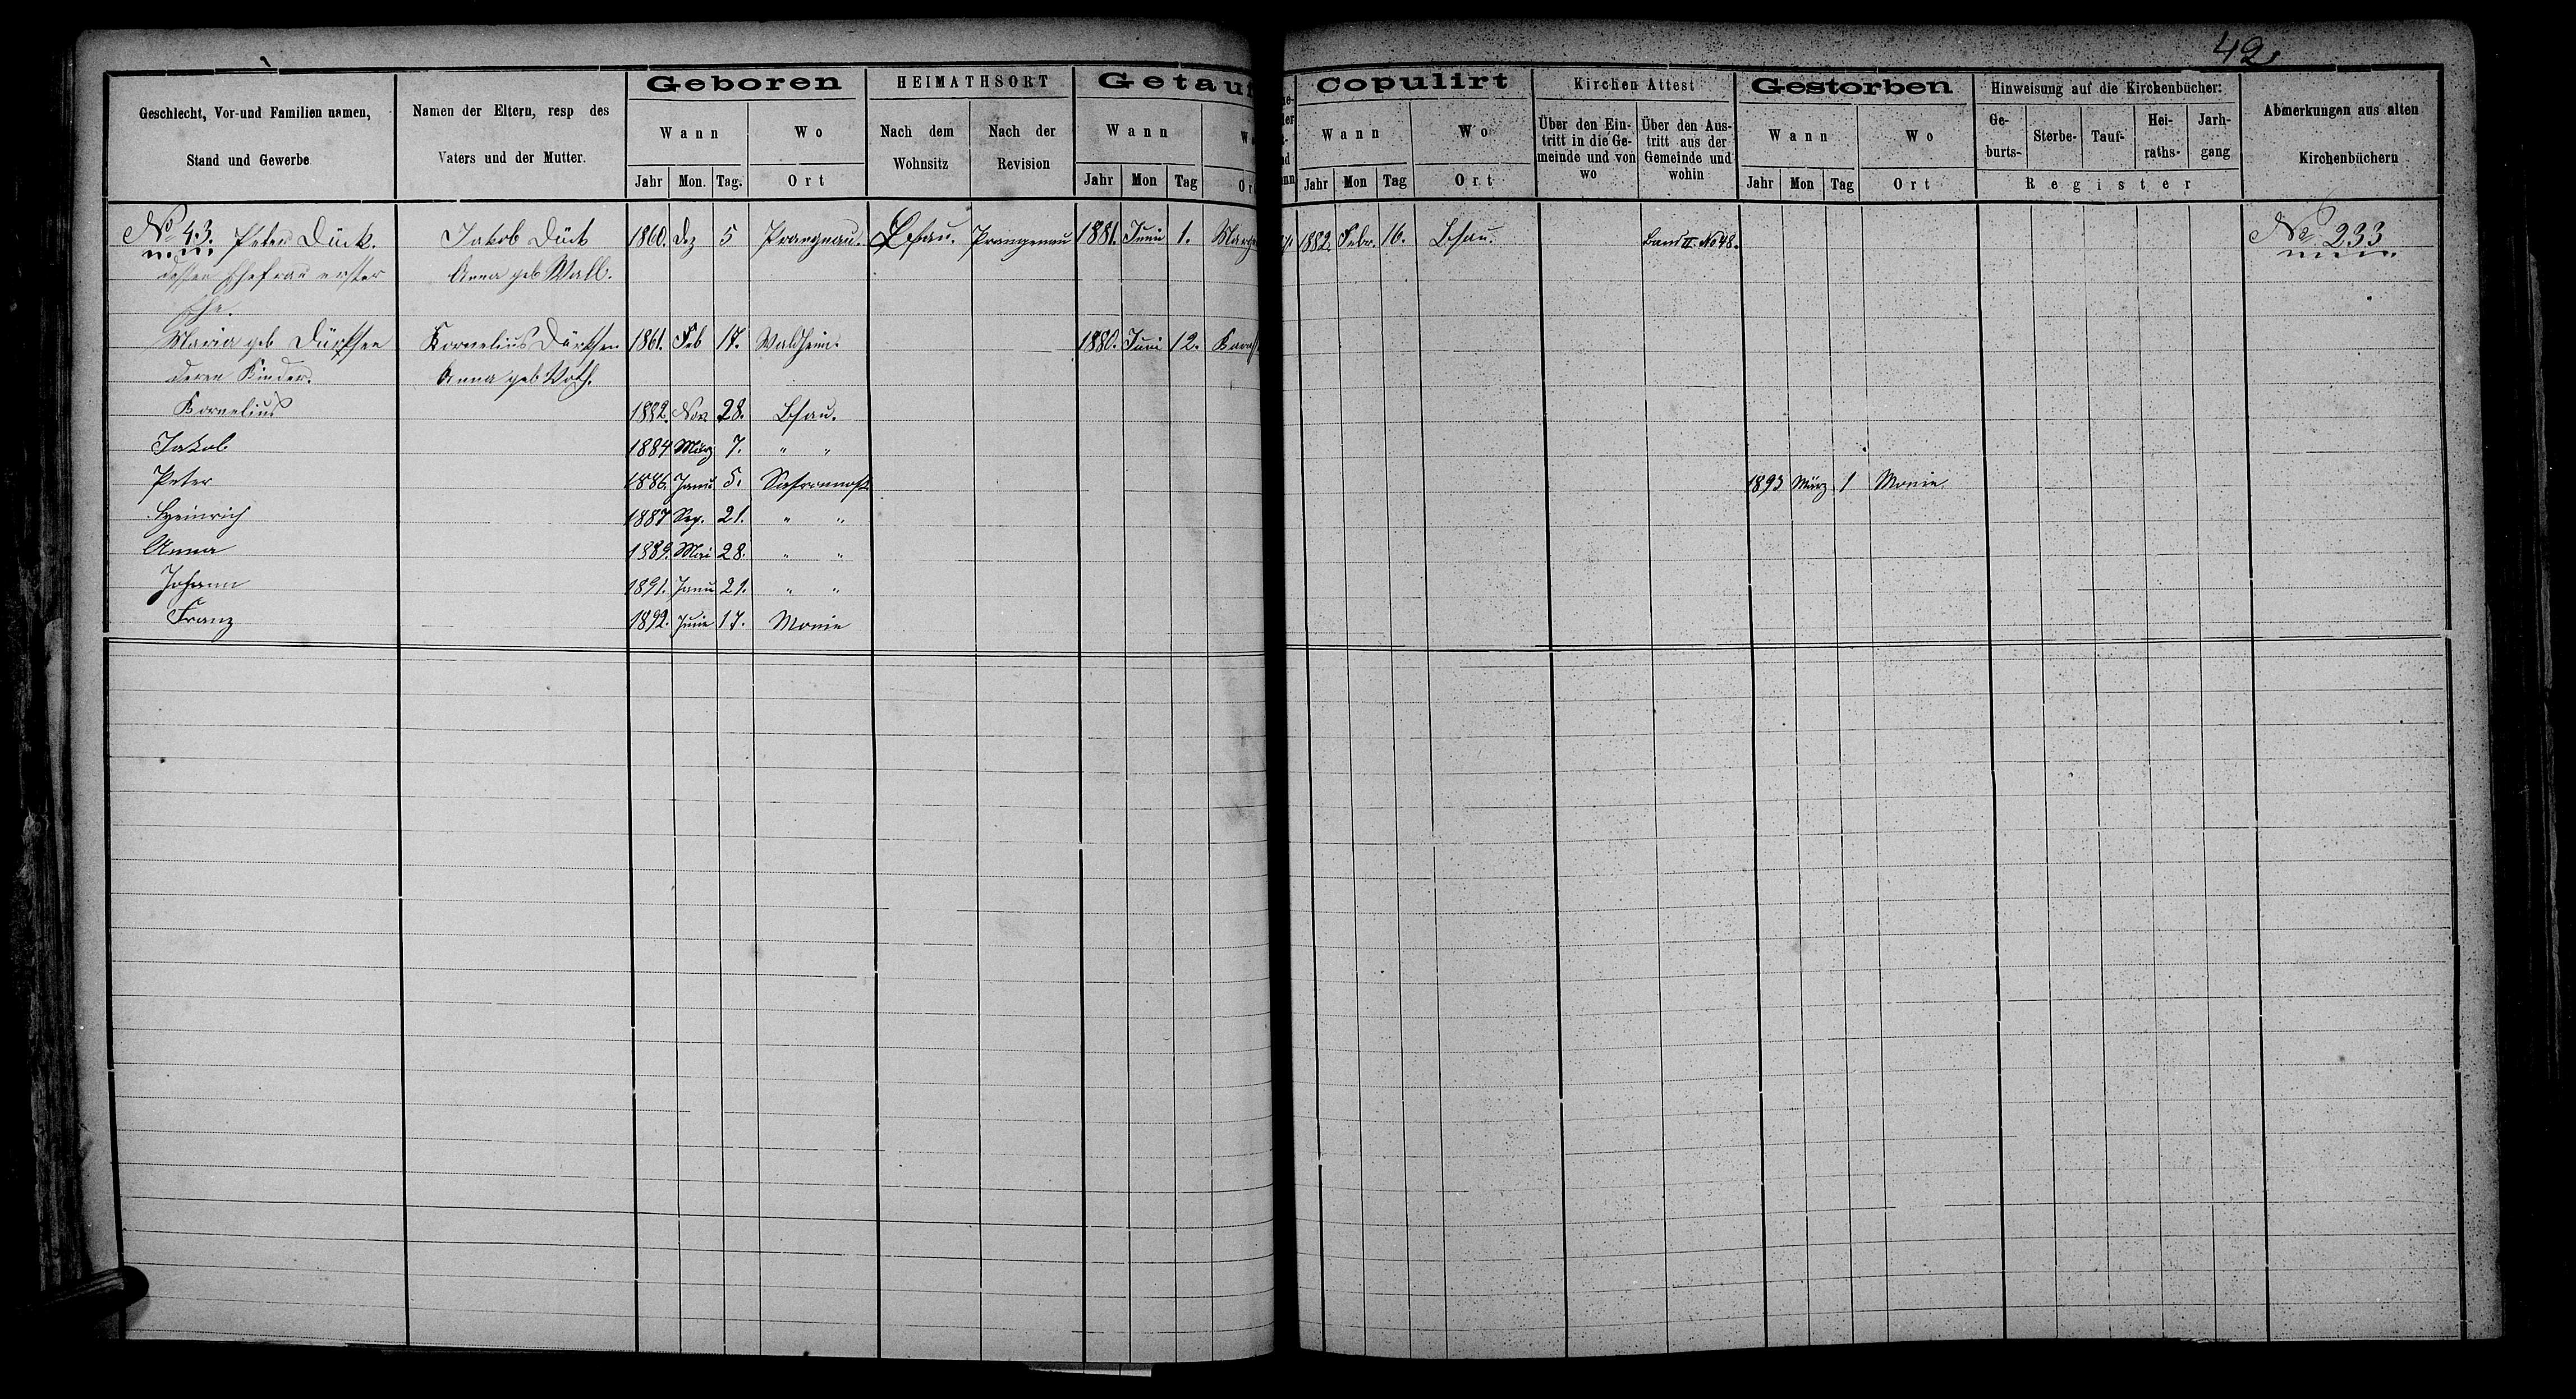 42.
Geschlecht, Vor-und Familien namen, Stand und Gewerbe
Namen der Eltern, resp des Vaters und der Mutter.
Geboren
Wann
Jahr Mon. Tag.
Wo
Ort
HEIMATHSORT
Nach dem Wohnsitz
Nach der Revision
Getauf
Wann
Jahr Mon Tag
Copulirt
Wann
Jahr Mon Tag
Wo
Ort
Kirchen Attest
Über den Ein-
tritt in die Ge-
meinde und von
wo
Über den Aus-
tritt aus der
Gemeinde und
wohin
Gestorben
Wann
Jahr Mon Tag
Wo
Ort
Hinweisung auf die Kirchenbücher:
Ge-
burts-
Sterbe-
Tauf-
Hei-
raths-
Jarh-
gang
Register
Abmerkungen aus alten Kirchenbüchern
No 43. Peter Dück. Jakob Dück 1860. Dez 5 Prangnau. Prangenau 1881. Juni 1. 1882. Febr. 16. Band II. No 48. No 233
dessen Ehefrau erster Anna geb Wall.
Ehe.
Maria geb Dürksen Kornelius Dürksen 1861. Feb 17. Waldheim. 1880. Juni 12.
deren Kinder. Anna geb Voth.
Kornelius 1882. Nov 28.
Jakob 1884 März 7. " "
Peter 1886. Janu 5. 1893 März 1
Heinrich 1887 Sep. 21. " "
Anna 1889. Mai 28. " "
Johann 1891. Janu 21. " "
Franz 1892. Junie 17.